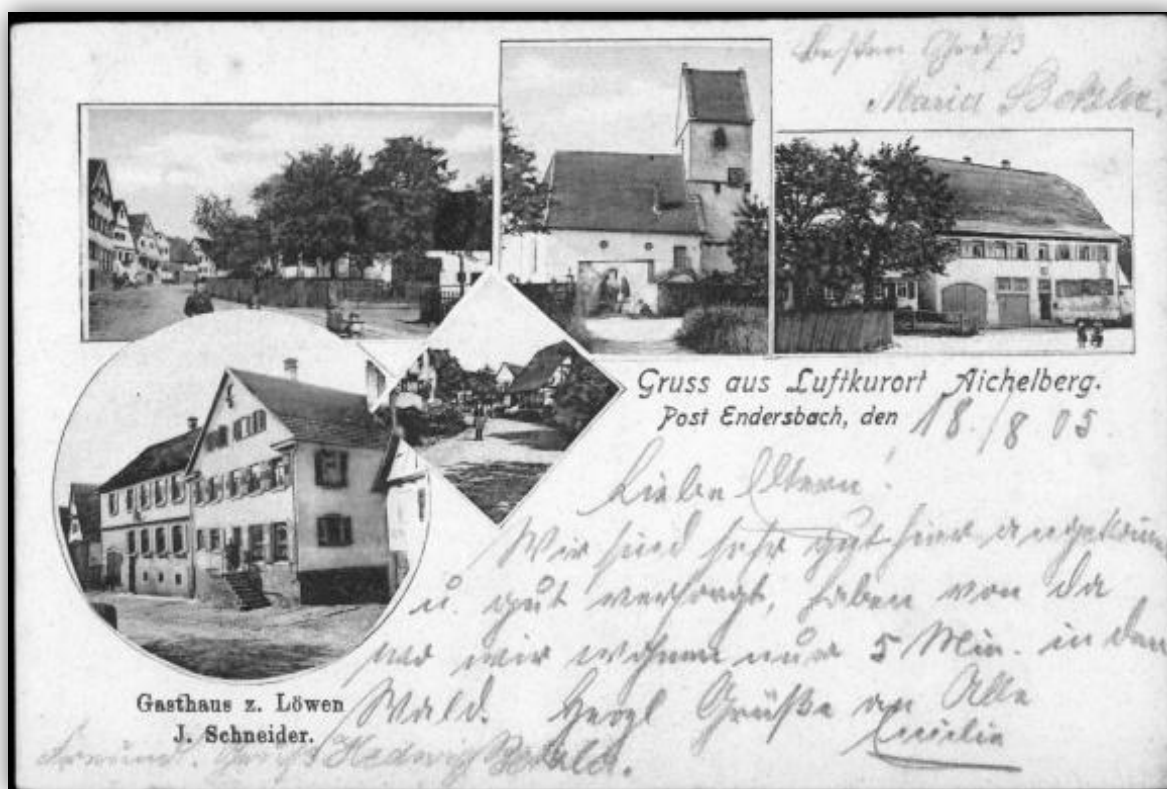 Besten Gruß
Maria
Gruss aus Luftkurort Aichelberg.
Post Endersbach, den 18./8.05.
Liebe Eltern!
Wir sind sehr gut hier angekom̅
u. gut versorgt, haben von da
wo wir wohnen nur 5 Min. in den
Wald. Herzl Grüße an Alle
Gasthaus z. Löwen
J. Schneider.
Freundl. Gruß Hedwig